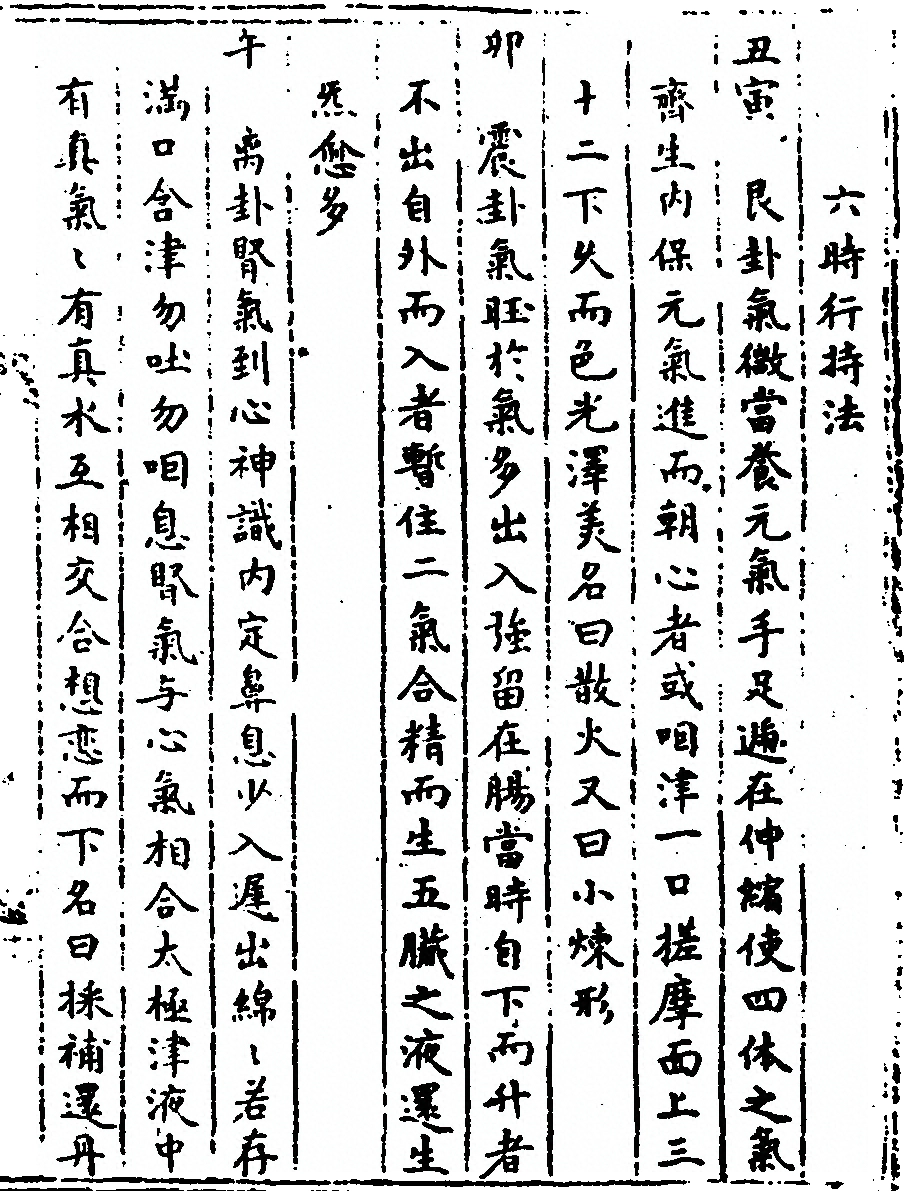 六時行持法
丑寅　艮卦氣微當養元氣手足遞在伸縮使四体之氣
齊生内保元氣進而朝心者或咽津一口搓摩面上三
十二下久而色光澤美名曰散火又曰小煉形
卯　震卦氣旺於氣多出入強留在腸當時自下而升者
不出自外而入者暫住二氣合精而生五臟之液還生
炁愈多
午　离卦腎氣到心神識内定鼻息少入遲出綿〻若存
滿口含津勿吐勿咽息腎氣与心氣相合太極津液中
有真氣〻有真水互相交合想恋而下名曰採補還丹